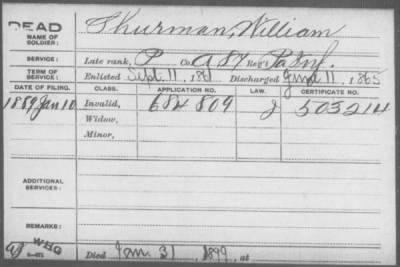 DEAD
NAME OF SOLDIER: Thurman, William
SERVICE: Late rank, P Co. A 57 Reg't Pa Inf.
TERM OF SERVICE: Enlisted Sept. 11, 1861 Discharged 11, 1865
DATE OF FILING. CLASS. APPLICATION NO. LAW. CERTIFICATE NO.
1889, Jan 10 Invalid, 684 809 J 503214
Widow,
Minor,
ADDITIONAL SERVICES:
REMARKS:
WHG
Died Jan. 31, 1899, at